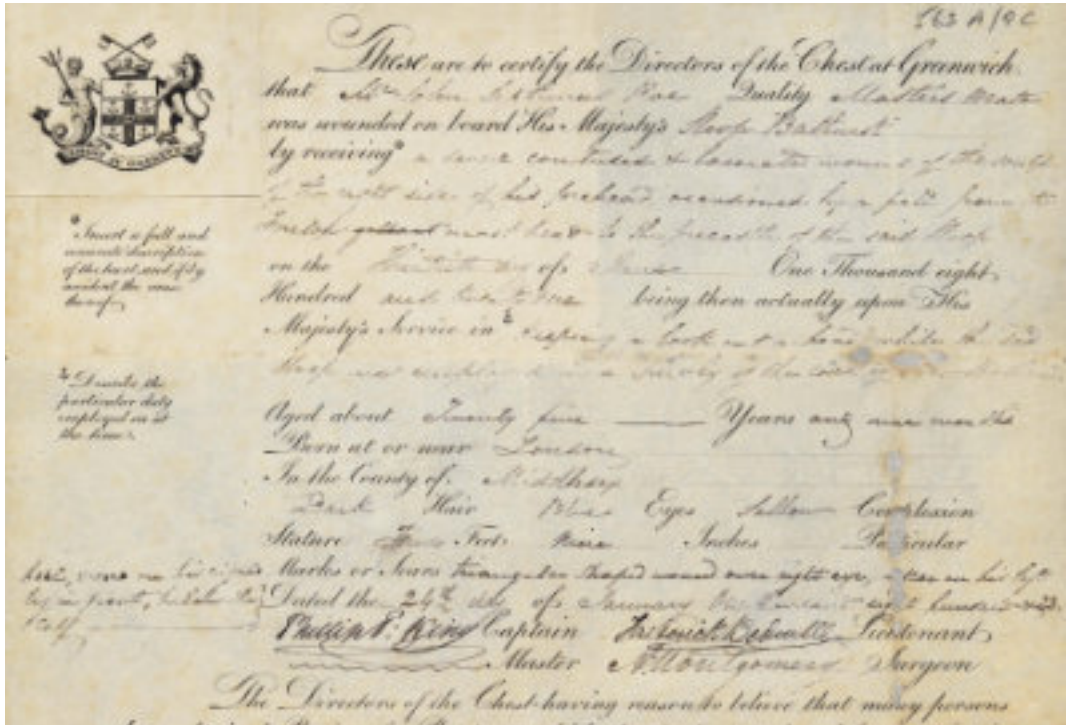 563 A/QC
These are to certify the Directors of the Chest at Greenwich
that Mr John Septimus Roe Quality Masters Mate
was wounded on board His Majesty's Sloop Bathurst
by receiving a severe contused & lacerated wound of the scalp
of the right side of his forehead occasioned by a fall from the
mast head to the forecastle of the said Sloop
on the day of One Thousand eight
Hundred and twenty one being then actually upon His
Majesty's Service in keeping a look out a head while the said
Sloop was
Aged about Twenty five Years and nine months
Born at or near London
In the County of Middlesex
Dark Hair Blue Eyes Sallow Complexion
Stature Five Feet Nine Inches Particular
Marks or Scars triangular shaped wound over right eye, scar on his left
Dated the 24th day of January One thousand eight hundred
Phillip P. King Captain Frederick Bedwell Lieutenant
Master A Montgomery Surgeon
The Directors of the Chest having reason to believe that many persons
* Insert a full and
accurate description
of the hurt, and if by
accident the cause
thereof.
Describe the
particular duty
employed in at
the time.